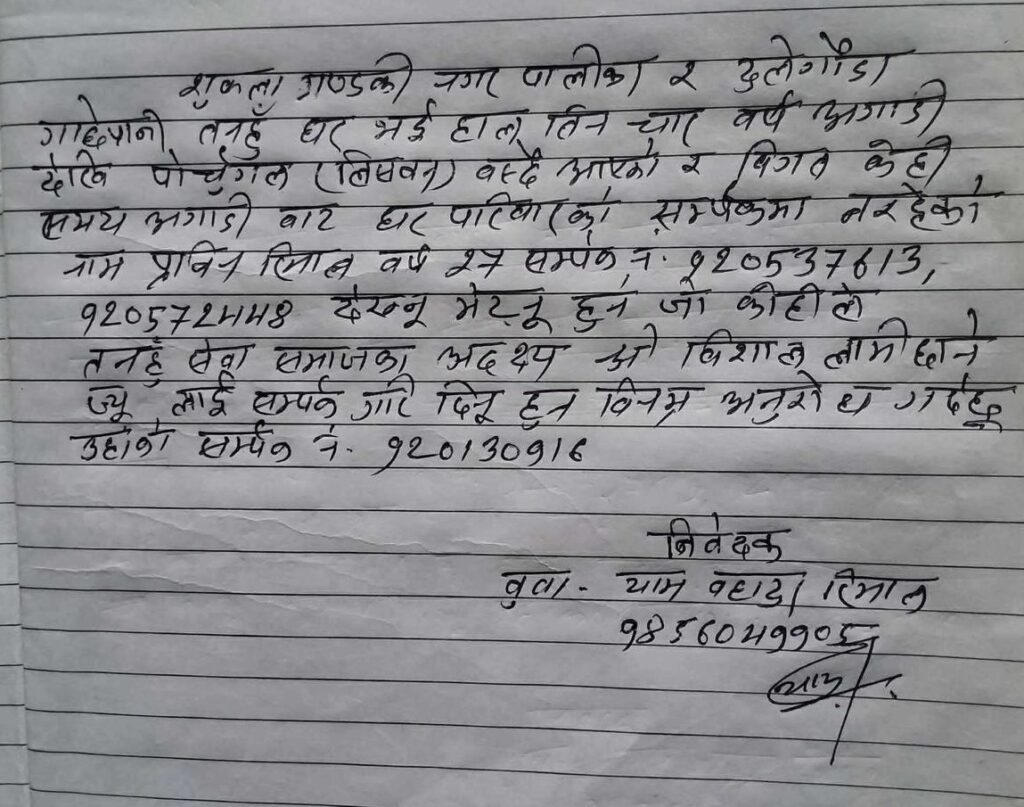 शुक्ला गण्डकी नगर पालीका २ दुलेगौडा
गाछेपानी तनहुँ घर भई हाल तिन चार वर्ष अगाडी
देखि पोर्चुगल (लिसवन) वस्दै आएको र विगत केही
समय अगाडी बाट घर परिवारको सम्र्पकमा नरहेको
नाम प्रविन रिमाल वर्ष २७ सम्पर्क नं. 920537613,
920572448 देख्नू भेट्नू हुने जो कोहीले
तनहुँ सेवा समाजका अदक्ष्य श्री विशाल लामीछाने
ज्यू लाई सम्पर्क गरि दिनू हुन विनम्र अनुरोध गर्दछु
उहाको सर्म्पक नं. 920130916
निवेदक
वुवा - याम वहादुर रिमाल